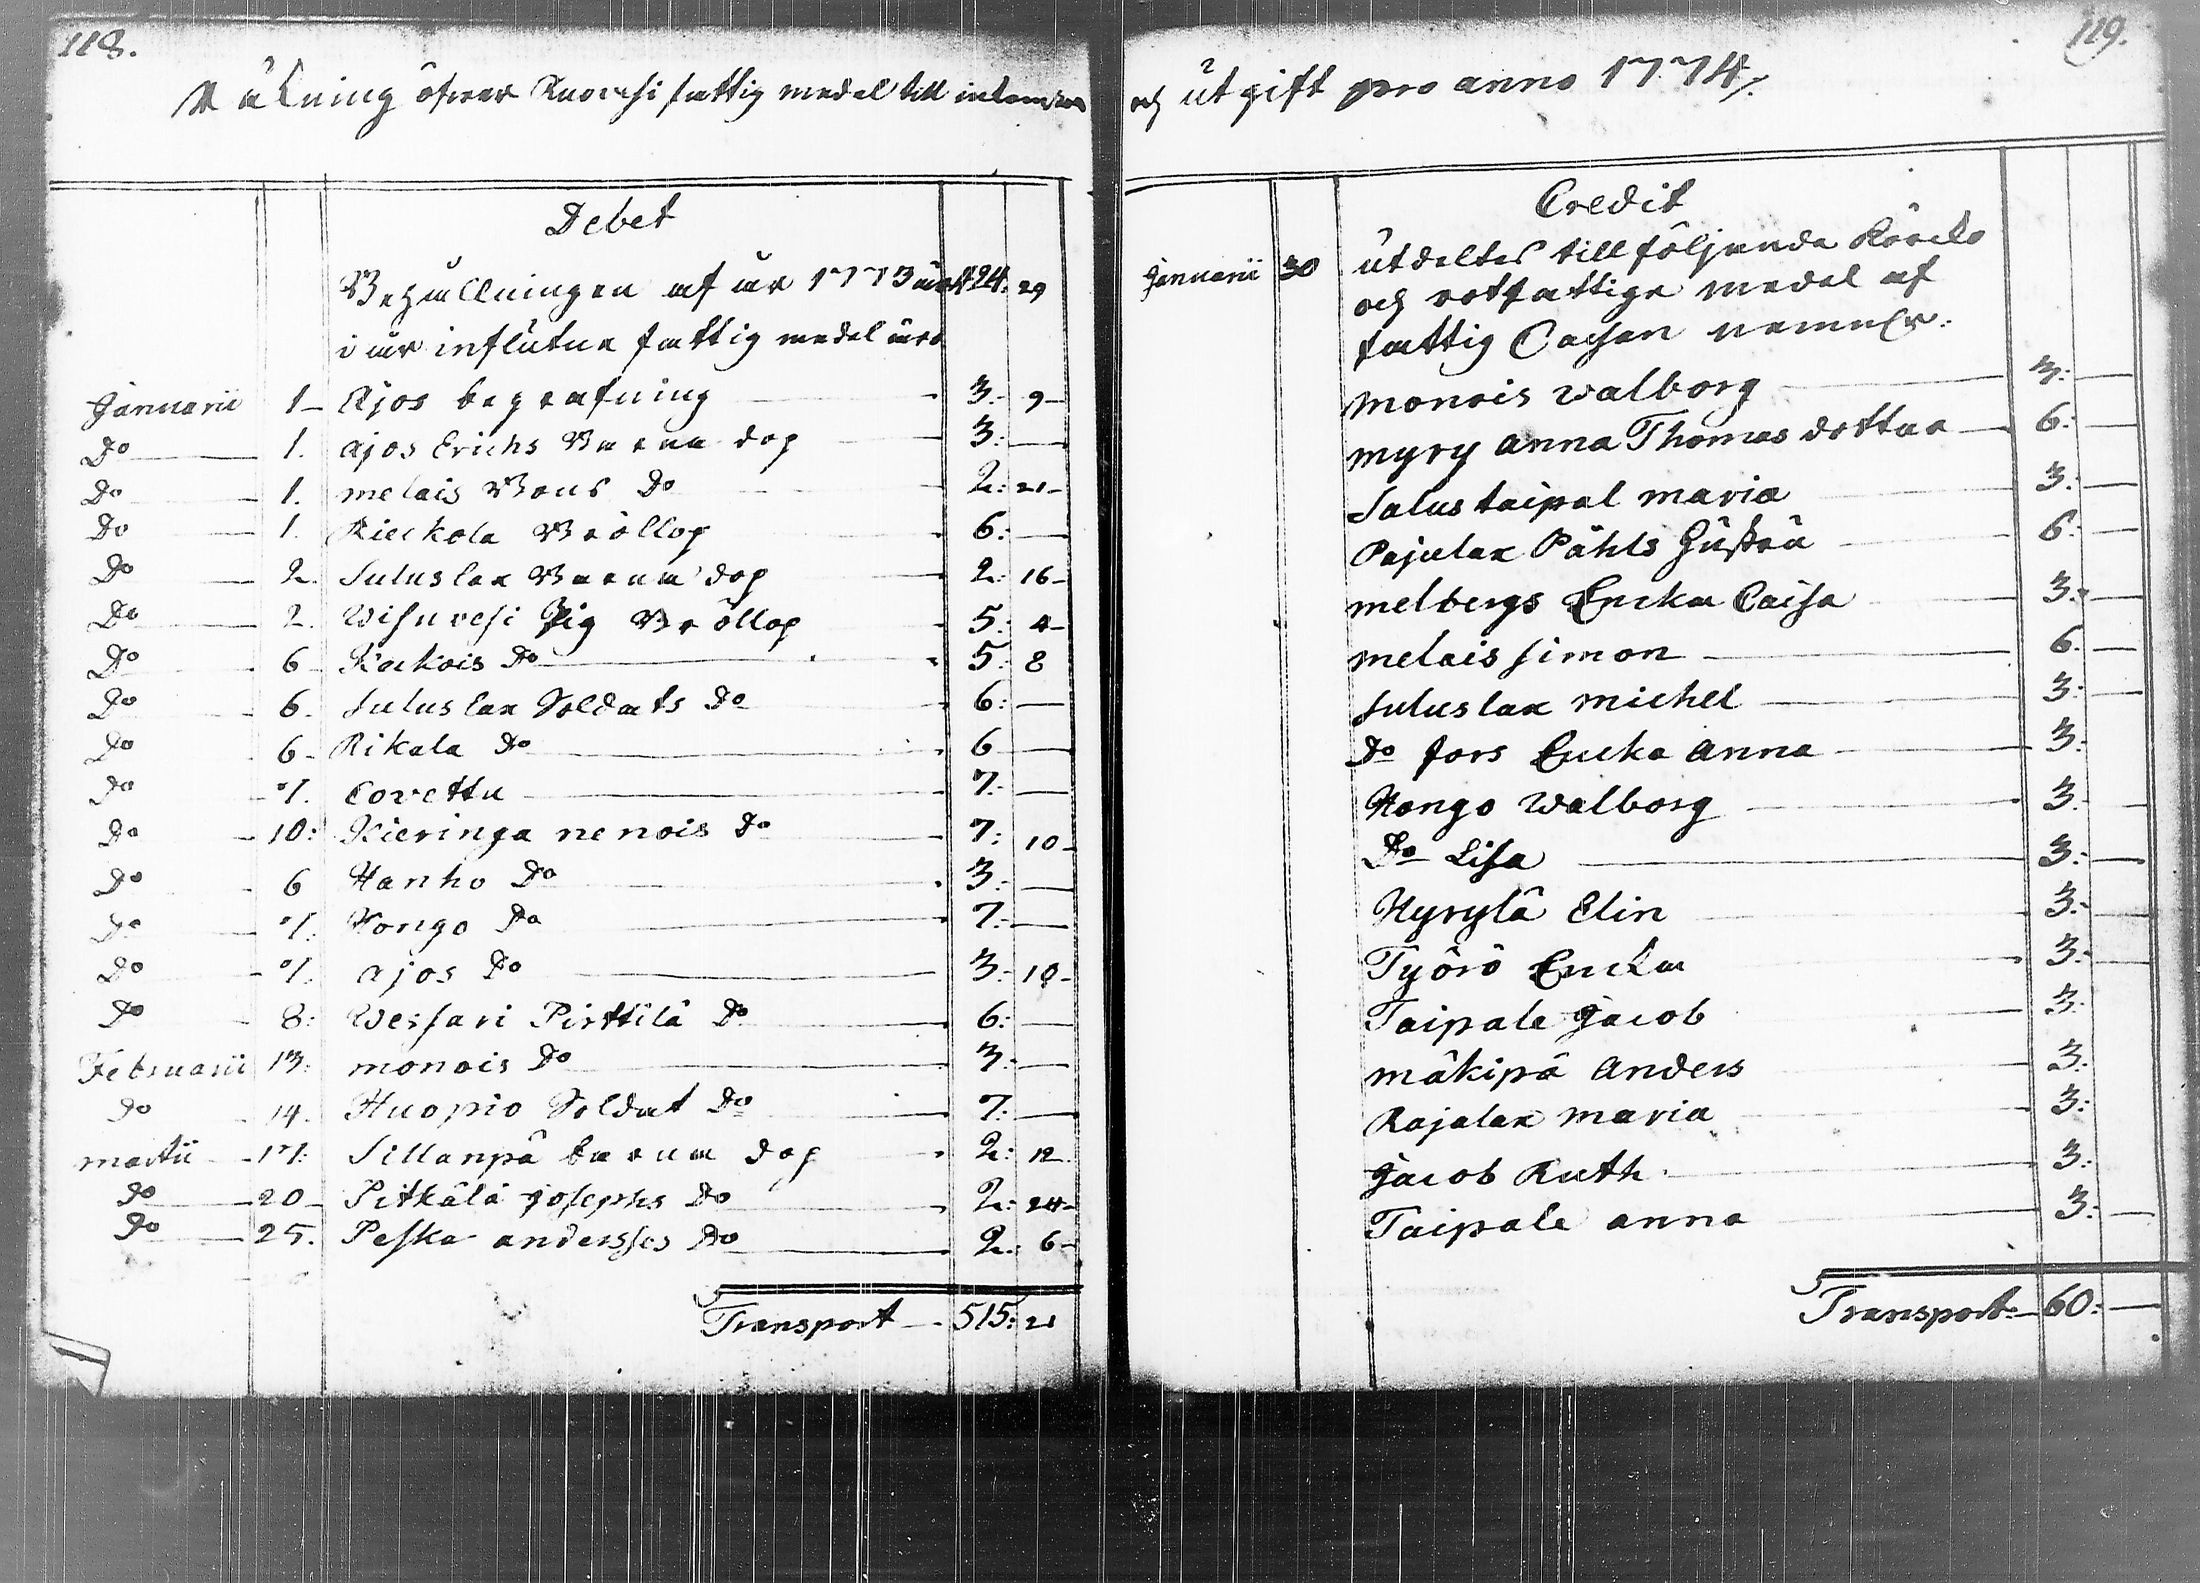 118.
Räkning öfwer Ruovesi fattig medel till inkomster
Debet
Behållningen af år 1773 är 424: 29
i år influtne fattig medel äro
Januarii 1 Ajos begrafning 3: 9
Do 1. Ajos Erichs Barna dop 3:
Do 1. melais Bons Do 2: 21
Do 1. Rieckola Bröllop 6:
Do 2. Suluslax Barna dop 2: 16
Do 2. Visuvesi Pig Bröllop 5: 4
Do 6 Kackois Do 5: 8
Do 6. Suluslax Soldats Do 6:
Do 6 Rikala Do 6
Do 7. Lovettu 7:
Do 10: Kieringa nenois Do 7: 10
Do 6 Hanho Do 3:
Do 7. Hongo Do 7:
Do 7. Ajos Do 3: 10
Do 8: Wessari Pirttilä Do 6:
Februarii 13: monois Do 3:
Do 14. Huopio Soldat Do 7:
martii 17: Sillanpä barna dop 2: 12
Do 20 Pitkälä Josephs Do 2: 24
Do 25. Peska anderssos Do 2: 6
Transport 515: 21
119.
och utgift pro anno 1774
Credit
Januarii 30 utdeltes till följande Körcko
och rotfattige medel af
fattig Cassan nemml:
monois walborg 3:
myry anna Thomas dotter 6:
Salustaipal maria 3:
Pajulax Påhls Hustru 6:
melbergs Encka Caisa 3:
melais simon 6.
Suluslax michel 3:
Do fors Encka Anna 3:
Hongo Walborg 3:
Do Lisa 3:
Hyrylä Elin 3:
Työrö Encka 3:
Taipale Jacob 3:
mäkipä Anders 3:
Rajalax maria 3:
Jacob Ruth 3:
Taipale anna 3:
Transport 60: